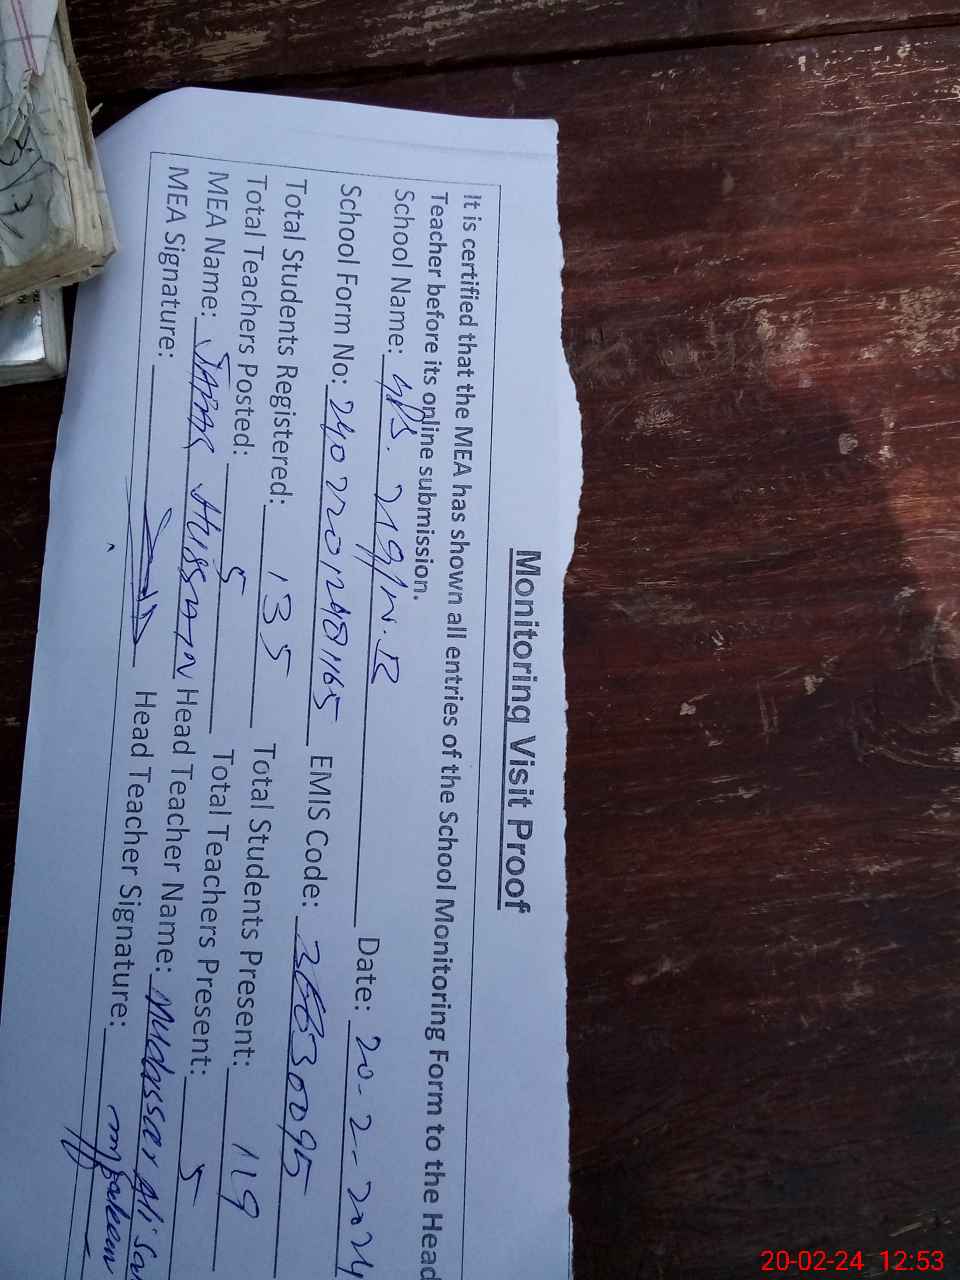 Monitoring Visit Proof
It is certified that the MEA has shown all entries of the School Monitoring Form to the Head
Teacher before its online submission.
School Name: GPS. 219/W.B Date: 20-2-2024
School Form No: 240220124981165 EMIS Code: 36630095
Total Students Registered: 135 Total Students Present: 119
Total Teachers Posted: 5 Total Teachers Present: 5
MEA Name: JAFAR HUSSAIN Head Teacher Name: Mudassar Ali
MEA Signature: Head Teacher Signature:
20-02-24 12:53